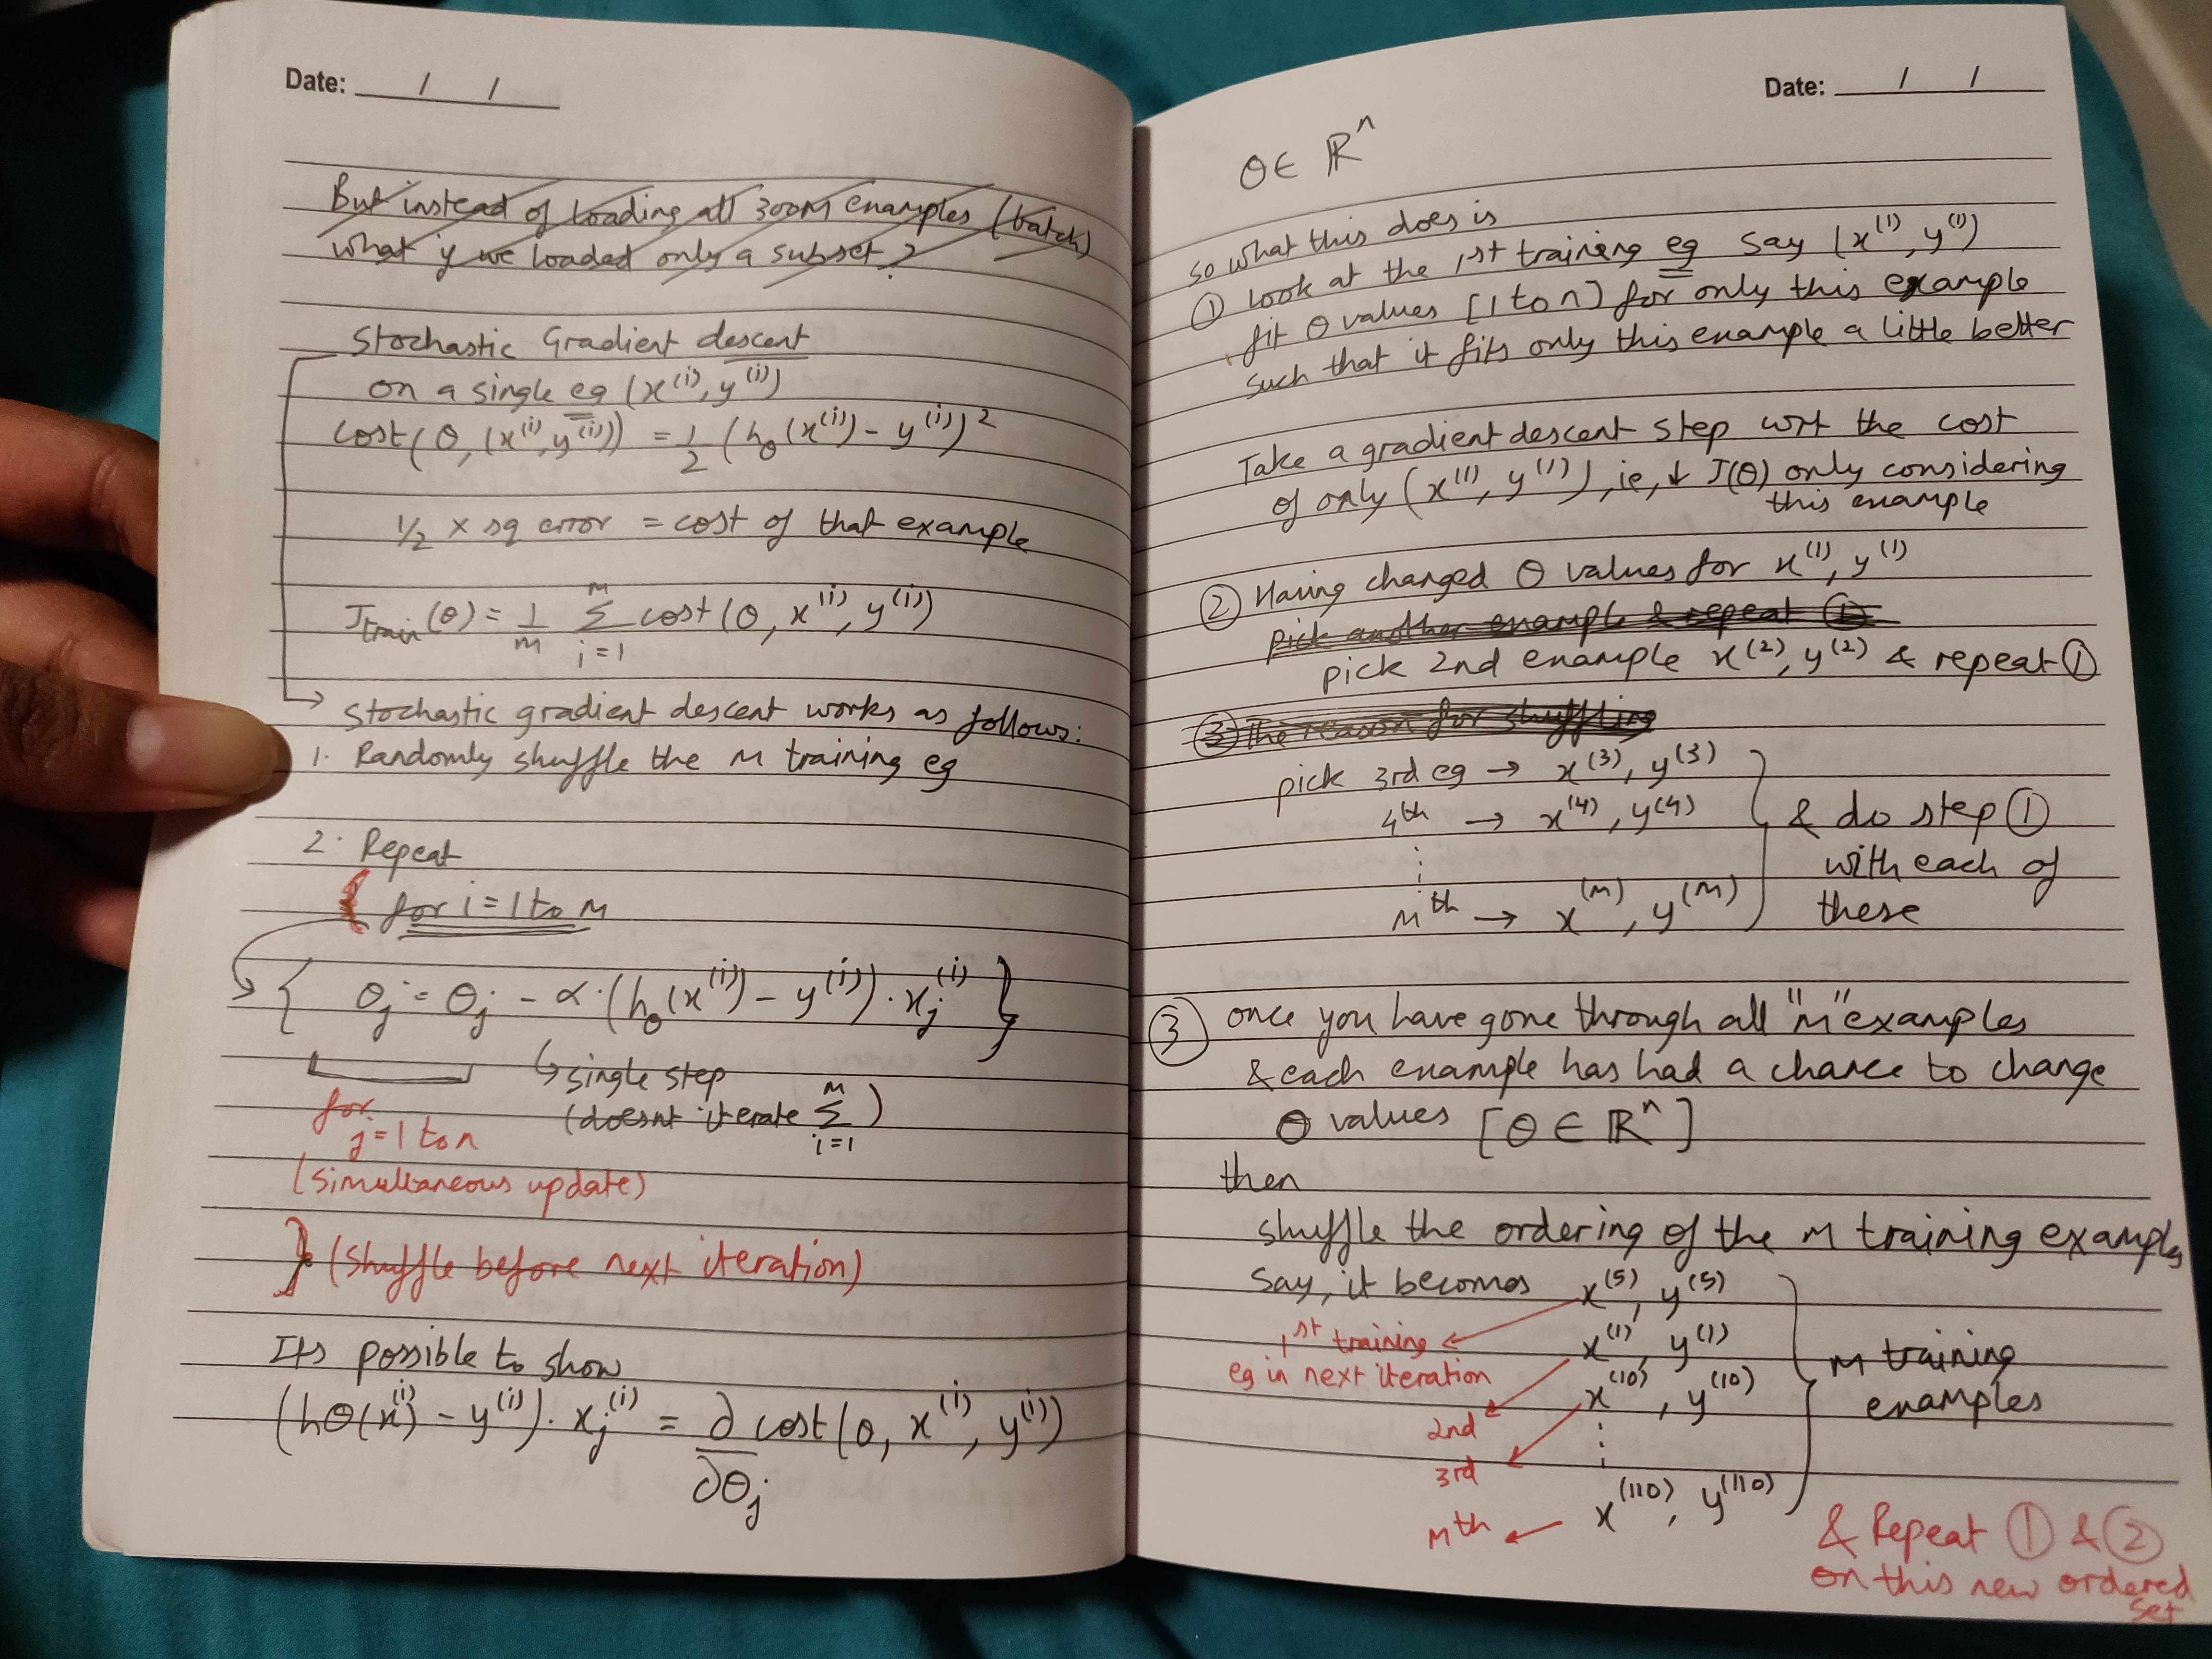 Date: / /
But instead of loading all 300M examples (batch)
what if we loaded only a subset?
Stochastic Gradient descent
on a single eg (x^(i), y^(i))
cost(θ, (x^(i), y^(i))) = 1/2 (h_θ(x^(i)) - y^(i))^2
1/2 x sq error = cost of that example
J_train(θ) = 1/m Σ_{i=1}^{m} cost(θ, x^(i), y^(i))
→ Stochastic gradient descent works as follows:
1. Randomly shuffle the m training eg
2. Repeat
{ for i = 1 to m
{ θ_j = θ_j - α·(h_θ(x^(i)) - y^(i))·x_j^(i) }
↳ single step
(doesnt iterate Σ_{i=1}^{m})
for
j = 1 to n
(simultaneous update)
} (Shuffle before next iteration)
Its possible to show
(hθ(x^(i)) - y^(i))·x_j^(i) = ∂/∂θ_j cost(θ, x^(i), y^(i))
Date: / /
θ ∈ ℝ^n
so what this does is
① Look at the 1st training eg say (x^(1), y^(1))
fit θ values [1 to n] for only this example
such that it fits only this example a little better
Take a gradient descent step wrt the cost
of only (x^(1), y^(1)), ie, ↓ J(θ) only considering
this example
② Having changed θ values for x^(1), y^(1)
pick another example & repeat ①
pick 2nd example x^(2), y^(2) & repeat ①
③ The reason for shuffling
pick 3rd eg → x^(3), y^(3)
4th → x^(4), y^(4)
⋮
mth → x^(m), y^(m)
} & do step ①
with each of
these
③ once you have gone through all "m" examples
& each example has had a chance to change
θ values [θ ∈ ℝ^n]
then
shuffle the ordering of the m training examples
Say, it becomes x^(5), y^(5)
1st training
eg in next iteration
x^(1), y^(1)
2nd
x^(10), y^(10)
3rd
⋮
mth ← x^(110), y^(110)
} m training
examples
& Repeat ① & ②
on this new ordered
set